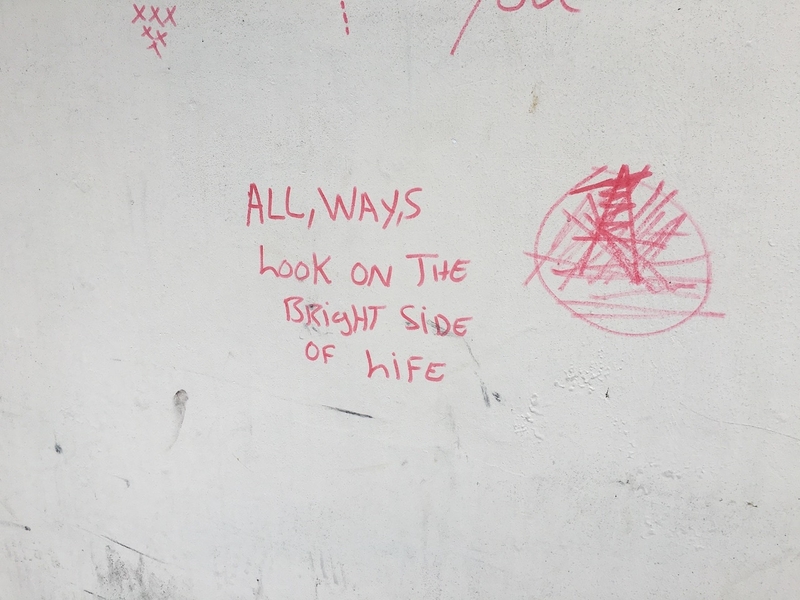 XXX
XX
X
ALL, WAY,S
LOOK ON THE
BRigHT SiDE
OF LiFE